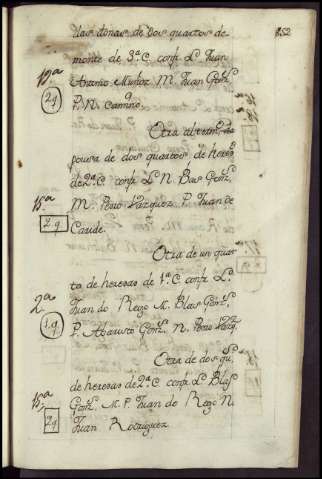 852
llas Antas de dos quartos de
monte de 3ª C. confr. L. Juan
Antonio Muñoz M. Juan Gonz.
P. N. Camino.
19ª
2q.
Otra
pousa de dos quartos de heres.
de 2ª C. confr. L. N. Blas Gonz.
M. Pedro Vazquez P. Juan de
Caride.
15ª
2.q.
Otra de un quar
to de heresas de 1ª C. confr. L.
Juan do Rego M. Blas Gonz.
P. Gonz. N. Pedro Vazq.
2ª
1.q.
Otra de dos qu.
de heresas de 2ª C. confr. L. Blas
Gonz. M. P. Juan do Rego N.
Juan Rodriguez.
15ª
2q